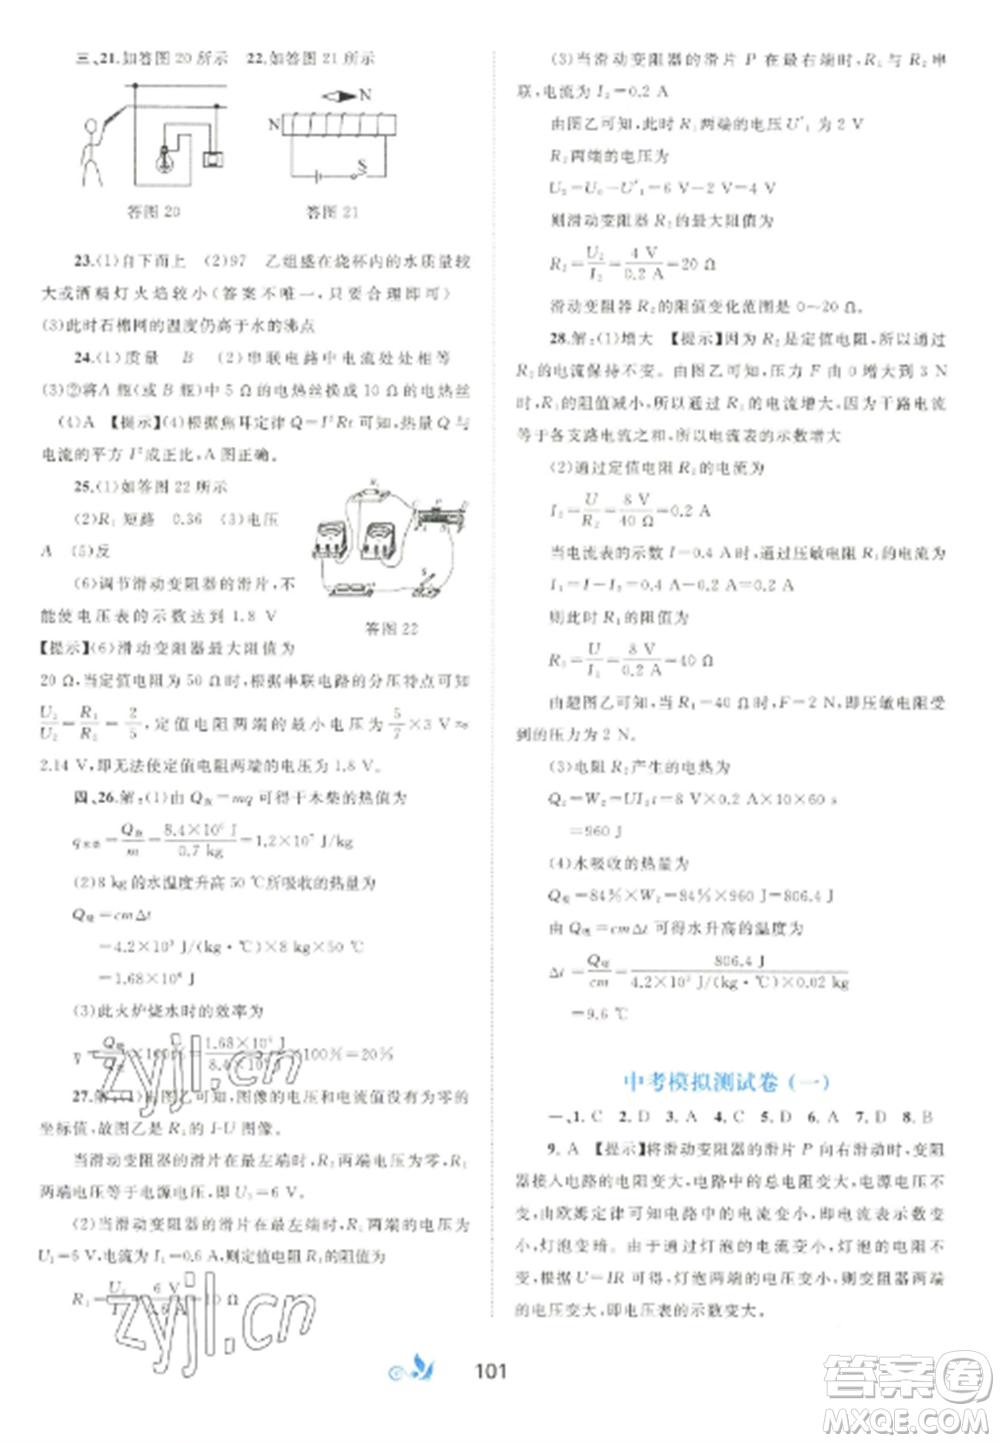 三、21.如答图 20 所示　22.如答图 21 所示
N
N
S
答图 20　答图 21
23.(1)自下而上　(2)97　乙组盛在烧杯内的水质量较
大或酒精灯火焰较小(答案不唯一,只要合理即可)
(3)此时石棉网的温度仍高于水的沸点
24.(1)质量　B　(2)串联电路中电流处处相等
(3)②将A 瓶(或 B 瓶)中 5 Ω 的电热丝换成 10 Ω 的电热丝
(4)A　【提示】(4)根据焦耳定律 Q=I²Rt 可知,热量 Q 与
电流的平方 I² 成正比,A 图正确。
25.(1)如答图 22 所示
(2)R₁ 短路　0.36　(3)电压
A　(5)反
(6)调节滑动变阻器的滑片,不
能使电压表的示数达到 1.8 V
答图 22
【提示】(6)滑动变阻器最大阻值为
20 Ω,当定值电阻为 50 Ω时,根据串联电路的分压特点可知
U₁/U₂=R₁/R₂=2/5,定值电阻两端的最小电压为5/7×3 V≈
2.14 V,即无法使定值电阻两端的电压为 1.8 V。
四、26.解:(1)由 Q放=mq 可得干木柴的热值为
q木柴=Q放/m=8.4×10⁶ J/0.7 kg=1.2×10⁷ J/kg
(2)8 kg的水温度升高 50 ℃所吸收的热量为
Q吸=cmΔt
=4.2×10³ J/(kg·℃)×8 kg×50 ℃
=1.68×10⁶ J
(3)此火炉烧水时的效率为
η=Q吸/Q放=1.68×10⁶ J/8.4×10⁶ J×100%=20%
27.解:(1)由图乙可知:图像的电压和电流有为零的
坐标值,故图乙是 R₁ 的 I-U 图像。
当滑动变阻器的滑片在最左端时,R₂两端电压为零,R₁
两端电压等于电源电压,即U₁=6 V。
(2)当滑动变阻器的滑片在最左端时,R₁两端的电压
U₁=6 V,电流 I₁=0.6 A,则定值电阻 R₁的阻值为
R₁=U₁/I₁=6 V/0.6 A=10 Ω
(3)当滑动变阻器的滑片 P 在最右端时,R₁与 R₂ 串
联,电流为 I₂=0.2 A
由图乙可知,此时 R₁两端的电压 U'₁=2 V
R₂ 两端的电压为
U₂=U₀-U'₁=6 V-2 V=4 V
则滑动变阻器 R₂的最大阻值为
R₂=U₂/I₂=4 V/0.2 A=20 Ω
滑动变阻器 R₂ 的阻值变化范围是 0~20 Ω。
28.解:(1)增大　【提示】因为 R₂ 是定值电阻,所以通过
R₂ 的电流保持不变。由图乙可知,压力 F 由 0 增大到 3 N
时,R₁ 的阻值减小,所以通过 R₁ 的电流增大,又因为干路电流
等于各支路电流之和,所以电流表的示数增大
(2)通过定值电阻 R₂ 的电流为
I₂=U/R₂=8 V/40 Ω=0.2 A
当电流表的示数 I=0.4 A时,通过压敏电阻 R₁的电流
为 I₁=I-I₂=0.4 A-0.2 A=0.2 A
则此时 R₁的阻值为
R₁=U/I₁=8 V/0.2 A=40 Ω
由题图乙可知,当 R₁=40 Ω时,F=2 N,即压敏电阻受
到的压力为 2 N。
(3)电阻 R₂产生的电热为
Q₂=W₂=UI₂t=8 V×0.2 A×10×60 s
=960 J
(4)水吸收的热量为
Q吸=84%×W₂=84%×960 J=806.4 J
由 Q吸=cmΔt可得水升高的温度为
Δt=Q吸/cm=806.4 J/4.2×10³ J/(kg·℃)×0.02 kg
=9.6 ℃
中考模拟测试卷(一)
一、1. C　2. D　3. A　4. C　5. D　6. A　7. D　8. B
9. A　【提示】将滑动变阻器的滑片 P 向右滑动时,变阻
器接入电路的电阻变大,电路中的总电阻变大,电源电压不
变,由欧姆定律可知电路中的电流变小,即电流表示数变
小,灯泡变暗。由于通过灯泡的电流变小,灯泡的电阻不
变,根据 U=IR 可得,灯泡两端的电压变小,则变阻器两端
的电压变大,即电压表的示数变大。
101
zyjl.cn
zyjl.cn
答案圈
MXQE.COM